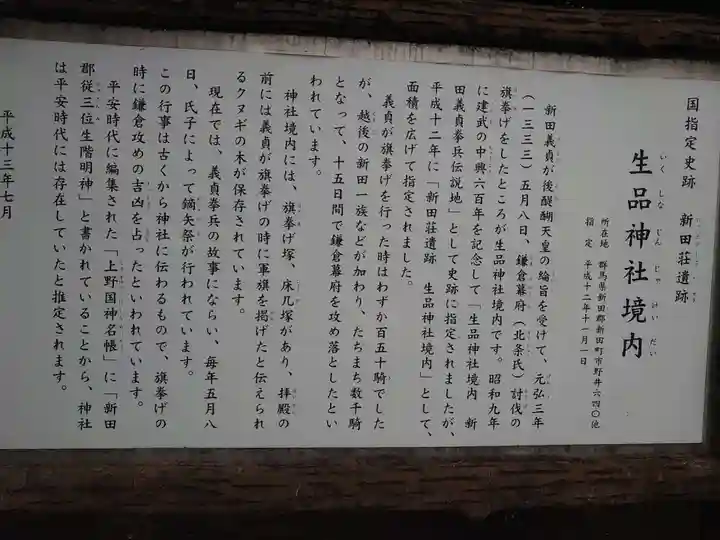 国指定史跡　新田荘遺跡
生品神社境内
いくしなじんじゃけいだい
所在地　群馬県新田郡新田町市野井六四〇他
指　定　平成十二年十一月一日
新田義貞が後醍醐天皇の綸旨を受けて、元弘三年
（一三三三）五月八日、鎌倉幕府（北条氏）討伐の
旗挙げをしたところが生品神社境内です。昭和九年
に建武の中興六百年を記念して「生品神社境内　新
田義貞挙兵伝説地」として史跡に指定されましたが、
平成十二年に「新田荘遺跡　生品神社境内」として、
面積を広げて指定されました。
義貞が旗挙げを行った時はわずか百五十騎でした
が、越後の新田一族などが加わり、たちまち数千騎
となって、十五日間で鎌倉幕府を攻め落としたとい
われています。
神社境内には、旗挙げ塚、床几塚があり、拝殿の
前には義貞が旗挙げの時に軍旗を掲げたと伝えられ
るクヌギの木が保存されています。
現在では、義貞挙兵の故事にならい、毎年五月八
日、氏子によって鏑矢祭が行われています。
この行事は古くから神社に伝わるもので、旗挙げの
時に鎌倉攻めの吉凶を占ったといわれています。
平安時代に編集された「上野国神名帳」に「新田
郡従三位生階明神」と書かれていることから、神社
は平安時代には存在していたと推定されます。
平成十三年七月